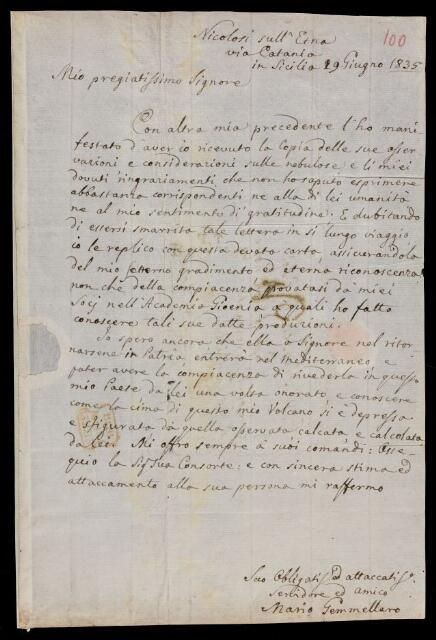 100
Nicolosi sull'Etna
via Catania
in Sicilia 29 Giugno 1835
Mio pregiatissimo Signore
Con altra mia precedente l'ho mani
festato d'aver io ricevuto la copia delle sue osser
vazioni e considerazioni sulle nebulose e li miei
dovuti ringraziamenti che non ho saputo esprimere
abbastanza corrispondenti ne alla di lei umanità
ne al mio sentimento di gratitudine. E dubitando
di essersi smarrita tale lettera in si lungo viaggio
io le replico con questa devota carta, assicurandola
del mio eterno gradimento ed eterna riconoscenza
non che della compiacenza provatasi da miei
Socj nell'Academia Gioenia a quali ho fatto
conoscere tali sue dotte produzioni.
Io spero ancora che ella o Signore nel ritor
narsene in Patria entrerà nel mediterraneo e
poter avere la compiacenza di rivederla in questo
mio Paese da lei una volta onorato e conoscere
come la cima di questo mio Volcano si è depressa
e sfigurata da quella osservata calcata e calcolata
da lei. Mi offro sempre à suoi comandi: Osse
quio la Sig.ª Sua Consorte: e con sincera stima ed
attaccamento alla sua persona mi raffermo
Suo Obligatis.º ed attaccatis.º
Servidore ed amico
Mario Gemmellaro